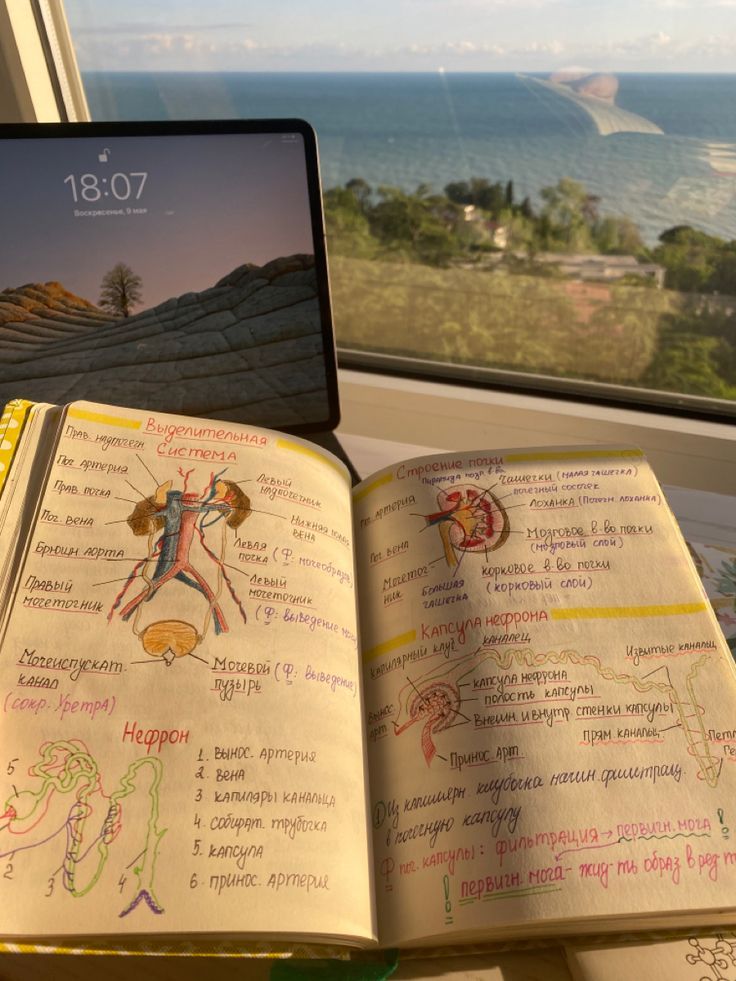 18:07
Воскресенье, 9 мая
Выделительная
Система
Прав. надпочечн
Поч артерия
Прав. почка
Поч. вена
Брюшн аорта
Правый
мочеточник
Мочеиспускат.
канал
(сокр. Уретра)
Левый
надпочечник
Нижняя полая
вена
Левая
почка (Ф: мочеобразов
Левый
мочеточник
(Ф: выведение мочи
Мочевой (Ф: выведение
пузырь
Нефрон
1. вынос. артерия
2. вена
3 капиляры канальца
4. собират. трубочка
5. капсула
6. принос. артерия
5
2
3
4
Строение почки
Пирамида
Поч. артерия
Поч вена
Мочеточ-
ник
Большая
чашечка
Чашечки (малая чашечка)
почечный сосочек
Лоханка (Почечн лоханка)
Мозговое в-во почки
(мозговый слой)
корковое в-во почки
(корковый слой)
Капсула нефрона
Капилярный клуб
каналец
Извитые канальц
капсула нефрона
полость капсулы
Внешн. и внутр. стенки капсулы
прям канальц
Вынос.
арт.
Принос. Арт.
Петл
Ге
① Из капилярн. клубочка начин. фильтрац.
в почочную капсулу
Ф поч. капсулы: фильтрация → первичн. моча !
! первичн. моча - жид-ть образ в рез